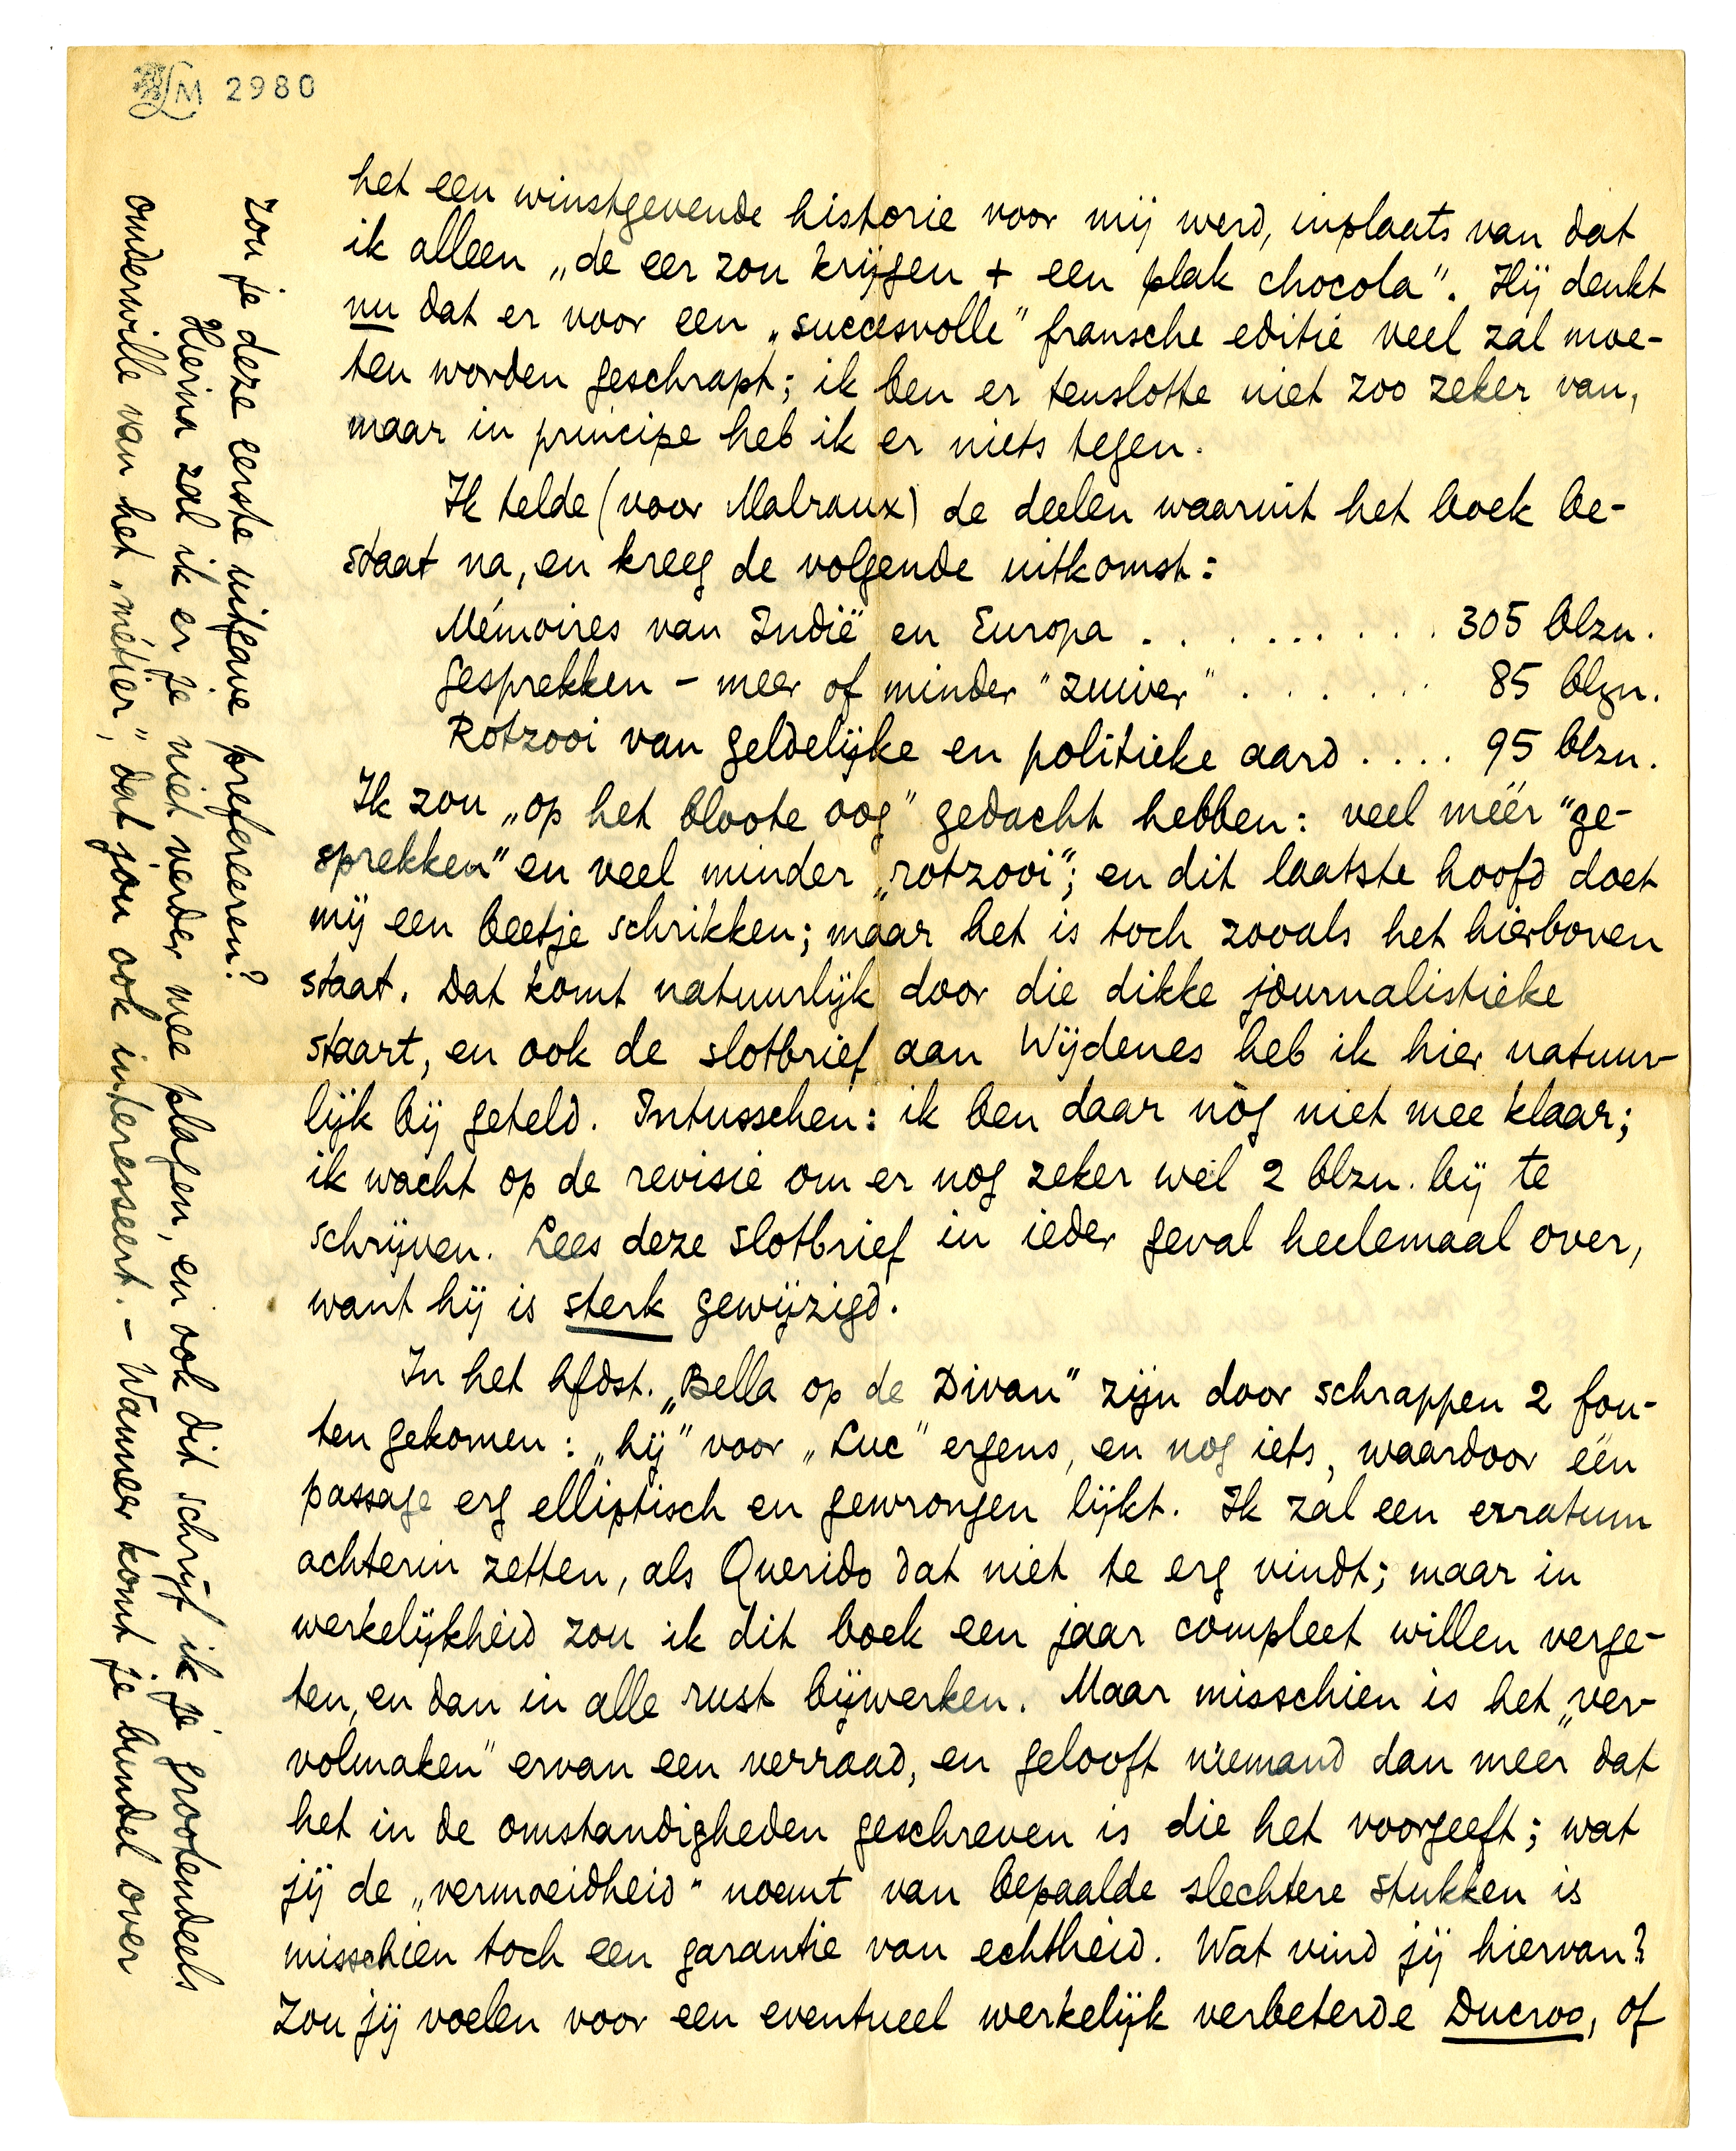 LM 2980
het een winstgevende historie voor mij werd, inplaats van dat
ik alleen „de eer zou krijgen + een plak chocola". Hij denkt
nu dat er voor een „succesvolle" fransche editie veel zal moe-
ten worden geschrapt; ik ben er tenslotte niet zoo zeker van,
maar in principe heb ik er niets tegen.
Ik telde (voor Malraux) de deelen waaruit het boek be-
staat na, en kreeg de volgende uitkomst:
Mémoires van Indië en Europa . . . . . . . . . 305 blzn.
Gesprekken - meer of minder "zuiver" . . . . . . 85 blzn.
Rotzooi van geldelijke en politieke aard . . . . 95 blzn.
Ik zou „op het bloote oog" gedacht hebben: veel méér "ge-
sprekken" en veel minder „rotzooi"; en dit laatste hoofd doet
mij een beetje schrikken; maar het is toch zooals het hierboven
staat. Dat komt natuurlijk door die dikke journalistieke
staart, en ook de slotbrief aan Wijdenes heb ik hier natuur-
lijk bij geteld. Intusschen: ik ben daar nòg niet mee klaar;
ik wacht op de revisie om er nog zeker wel 2 blzn. bij te
schrijven. Lees deze slotbrief in ieder geval heelemaal over,
want hij is sterk gewijzigd.
In het hfdst. „Bella op de Divan" zijn door schrappen 2 fou-
ten gekomen: „hij" voor „Luc" ergens, en nog iets, waardoor één
passage erg elliptisch en gewrongen lijkt. Ik zal een erratum
achterin zetten, als Querido dat niet te erg vindt; maar in
werkelijkheid zou ik dit boek een jaar compleet willen verge-
ten, en dan in alle rust bijwerken. Maar misschien is het „ver-
volmaken" ervan een verraad, en gelooft niemand dan meer dat
het in de omstandigheden geschreven is die het voorgeeft; wat
jij de „vermoeidheid" noemt van bepaalde slechtere stukken is
misschien toch een garantie van echtheid. Wat vind jij hiervan?
Zou jij voelen voor een eventueel werkelijk verbeterde Ducroo, of
zou je deze eerste uitgave prefereeren?
Hierna zal ik er je niet verder mee plagen, en ook dit schrijf ik je grootendeels
omderwille van het „métier", dat jou ook interesseert. - Wanneer komt je bundel over